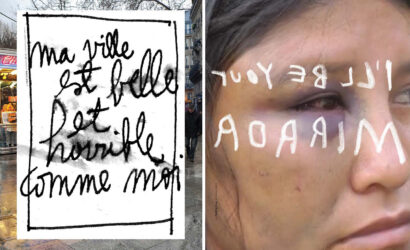 ma ville
est belle
et
horrible
comme moi.
I'LL BE YOUR
MIRROR